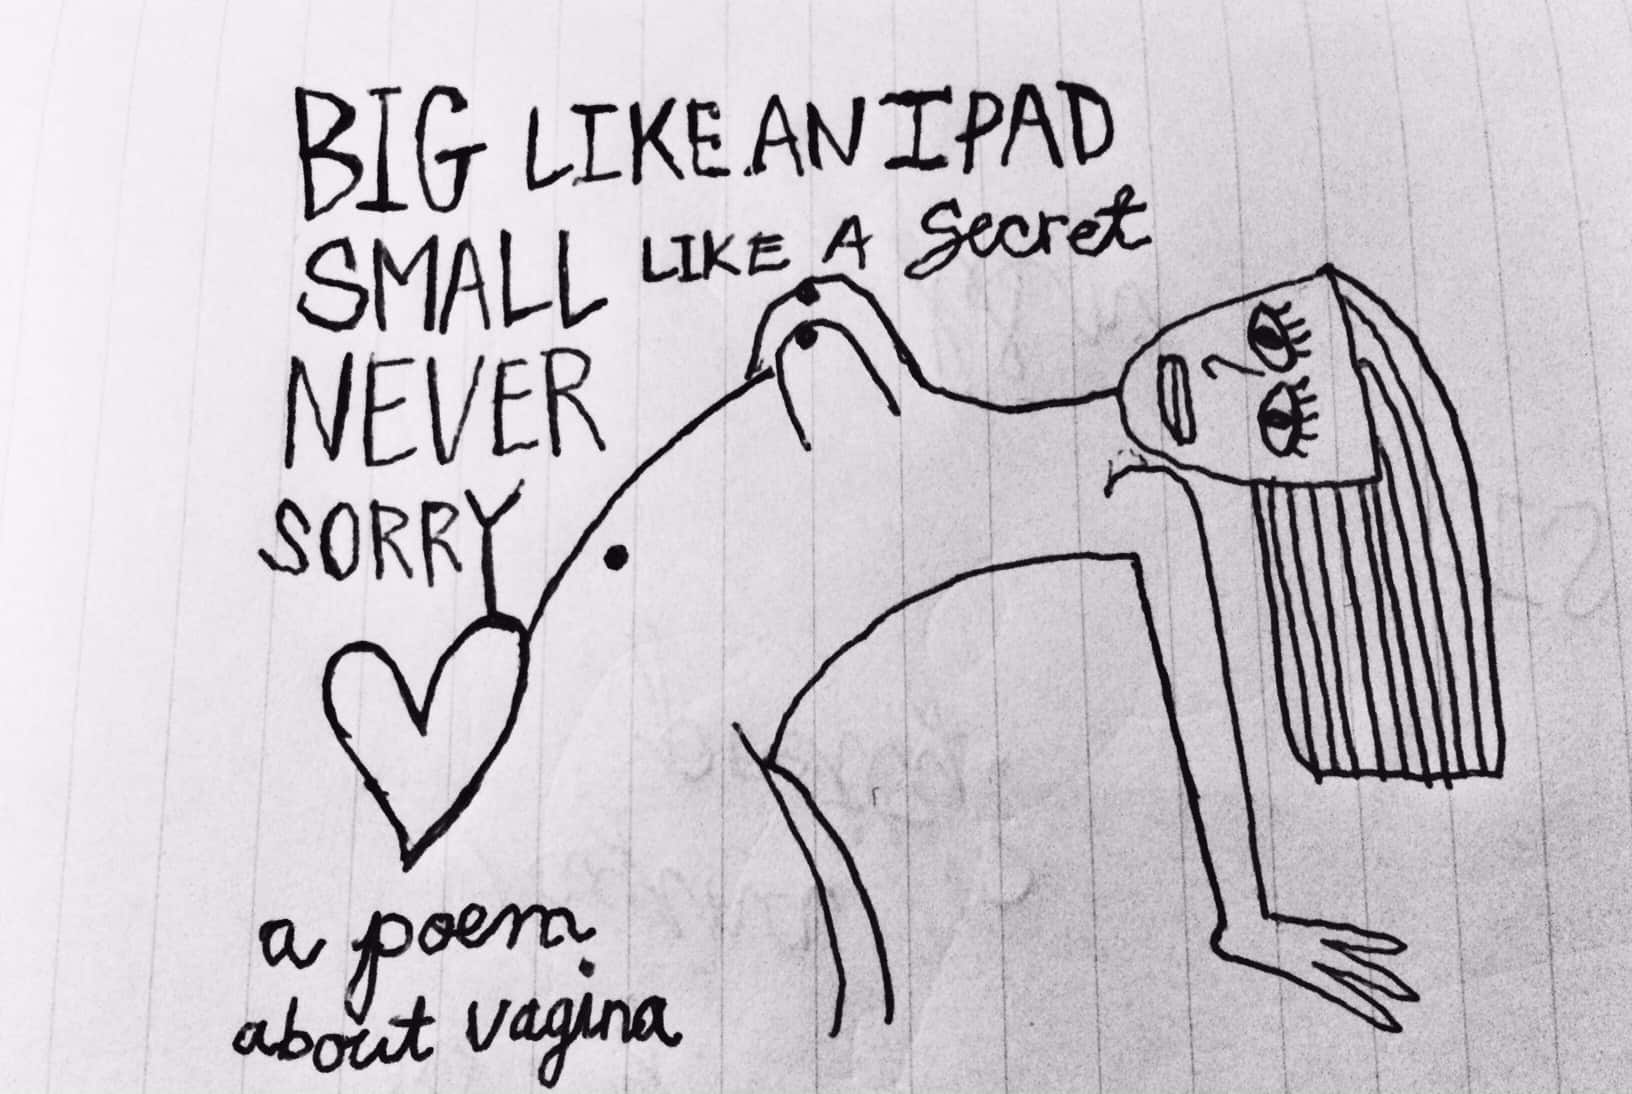 BIG LIKE AN IPAD
SMALL LIKE A Secret
NEVER
SORRY
a poem
about vagina